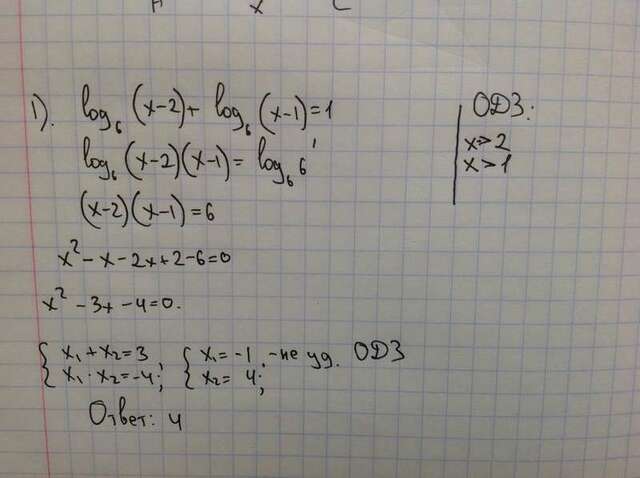 1). log₆(x-2)+log₆(x-1)=1
log₆(x-2)(x-1)=log₆6¹
(x-2)(x-1)=6
x²-x-2x+2-6=0
x²-3x-4=0.
{ x₁+x₂=3 ; { x₁=-1, -не уд. ОДЗ
{ x₁·x₂=-4; { x₂= 4;
Ответ: 4
ОДЗ:
x>2
x>1